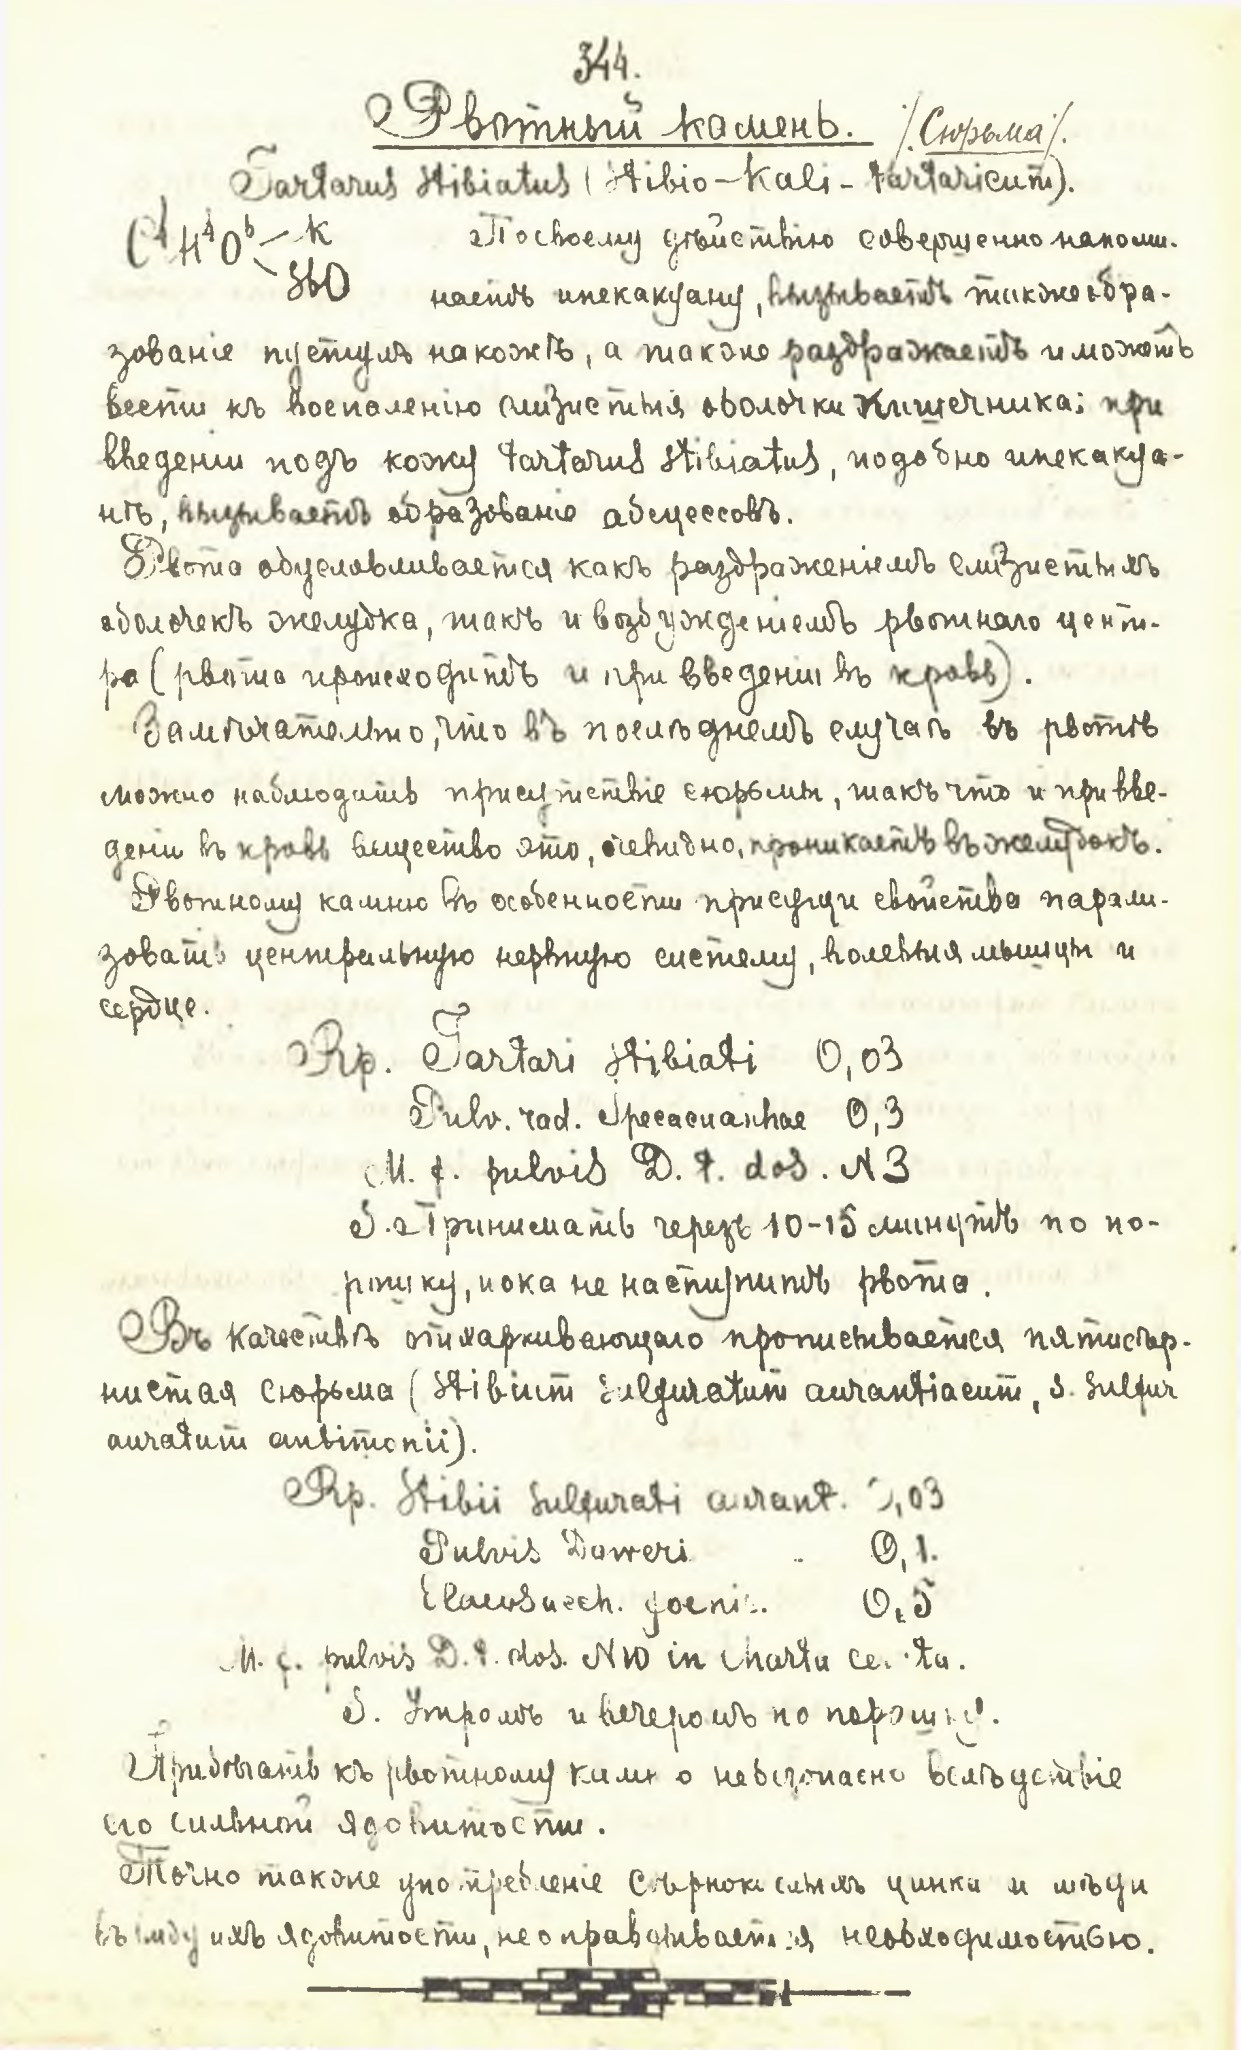 344.
Рвотный камень. /Сюрьма/.
Tartarus stibiatus (Stibio-Kali-tartaricum).
C⁴H⁴O⁶ K По своему дѣйствію совершенно напоми-
SbO наетъ ипекакуану, вызываетъ также обра-
зованіе пустулъ на кожѣ, а также раздражаетъ и можетъ
вести къ воспаленію слизистыя оболочки кишечника; при
введеніи подъ кожу tartarus stibiatus, подобно ипекакуа-
нѣ, вызываетъ образованіе абсцессовъ.
Рвота обусловливается какъ раздраженіемъ слизистыхъ
оболочекъ желудка, такъ и возбужденіемъ рвотнаго цент-
ра (рвота происходитъ и при введеніи въ кровь).
Замѣчательно, что въ послѣднемъ случаѣ въ рвотѣ
можно наблюдать присутствіе сюрьмы, такъ что и при вве-
деніи въ кровь вещество это, очевидно, проникаетъ въ желудокъ.
Рвотному камню въ особенности присущи свойства парали-
зовать центральную нервную систему, волевыя мышцы и
сердце.
Rp. Tartari stibiati 0,03
Pulv. rad. Ipecacuanhae 0,3
M. f. pulvis D. t. dos. N 3
S. Принимать черезъ 10-15 минутъ по по-
рошку, пока не наступитъ рвота.
Въ качествѣ отхаркивающаго прописывается пятисѣр-
нистая сюрьма (Stibium sulfuratum aurantiacum, s. Sulfur
auratum antimonii).
Rp. Stibii sulfurati aurant. 0,03
Pulvis Doweri 0,1.
Elaeosacch. foenic. 0,5
M. f. pulvis D. t. dos. N 10 in charta cerata.
S. Утромъ и вечеромъ по порошку.
Прибѣгать къ рвотному камню небезопасно вслѣдствіе
его сильной ядовитости.
Точно также употребленіе сѣрнокислыхъ цинка и мѣди
въ виду ихъ ядовитости, не оправдывается необходимостью.